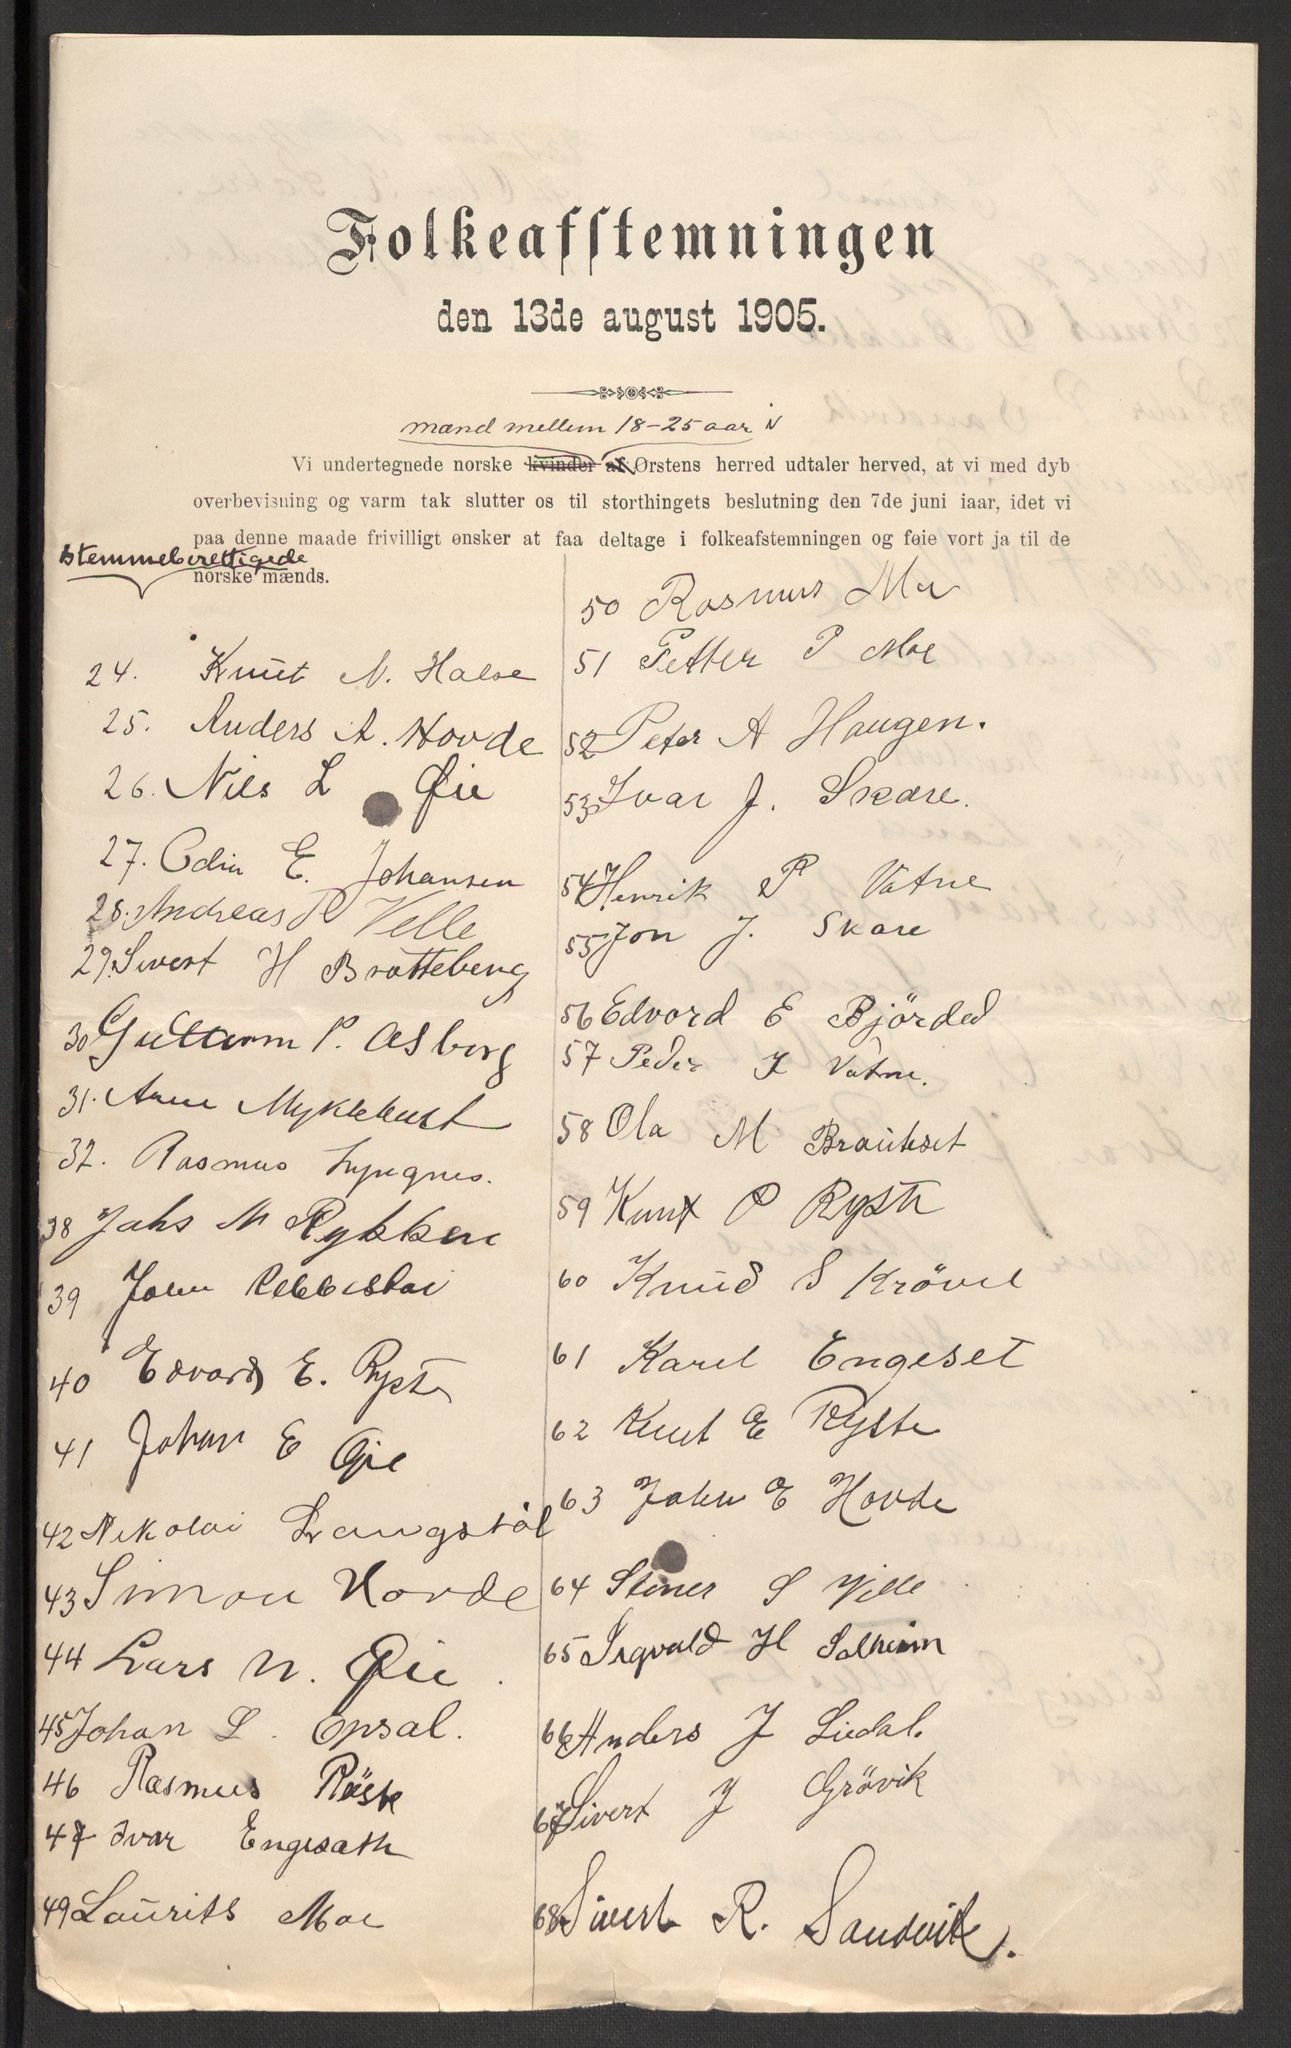 Folkeafstemningen
den 13de august 1905.
mænd mellem 18-25 aar i
Vi undertegnede norske kvinder af Ørstens herred udtaler herved, at vi med dyb
overbevisning og varm tak slutter os til storthingets beslutning den 7de juni iaar, idet vi
paa denne maade frivilligt ønsker at faa deltage i folkeafstemningen og føie vort ja til de
stemmeberettigede
norske mænds.
24. Knut N. Halse
25. Anders A. Hovde
26. Nils L Øie
27. Odin E. Johansen
28. Andreas R Velle
29. Sivert H Brøtteberg
30 Guttorm P. Aasberg
31. Arne Myklebust
32. Rasmus
38 Jahs M Rykken
39 John
40 Edvard E. Ryste
41 Johan E Øie
42 Nikolai Langstöl
43 Simon Hovde
44 Lars N. Øie.
45 Johan L. Opsal.
46 Rasmus Röste
47 Ivar Engesæth
49 Laurits Moe
50 Rasmus Mo
51 Petter P Moe
52 Peter A Haugen.
53 Ivar J. Skare.
54 Henrik P Vatne
55 Jon J. Skare
56 Edvard E Bjørdal
57 Peder J Vatne.
58 Ola M Brauteset
59 Knut P Ryste
60 Knud S Krövel
61 Karel Engeset
62 Knut E Ryste
63 John E Hovde
64 Steiner S Velle
65 Sigvald H Solheim
66 Anders J Liedal.
67 Sivert J Grövik
68 Sivert R. Sandvik.